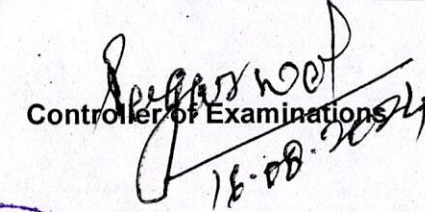 Controller of Examinations
16.08.2024